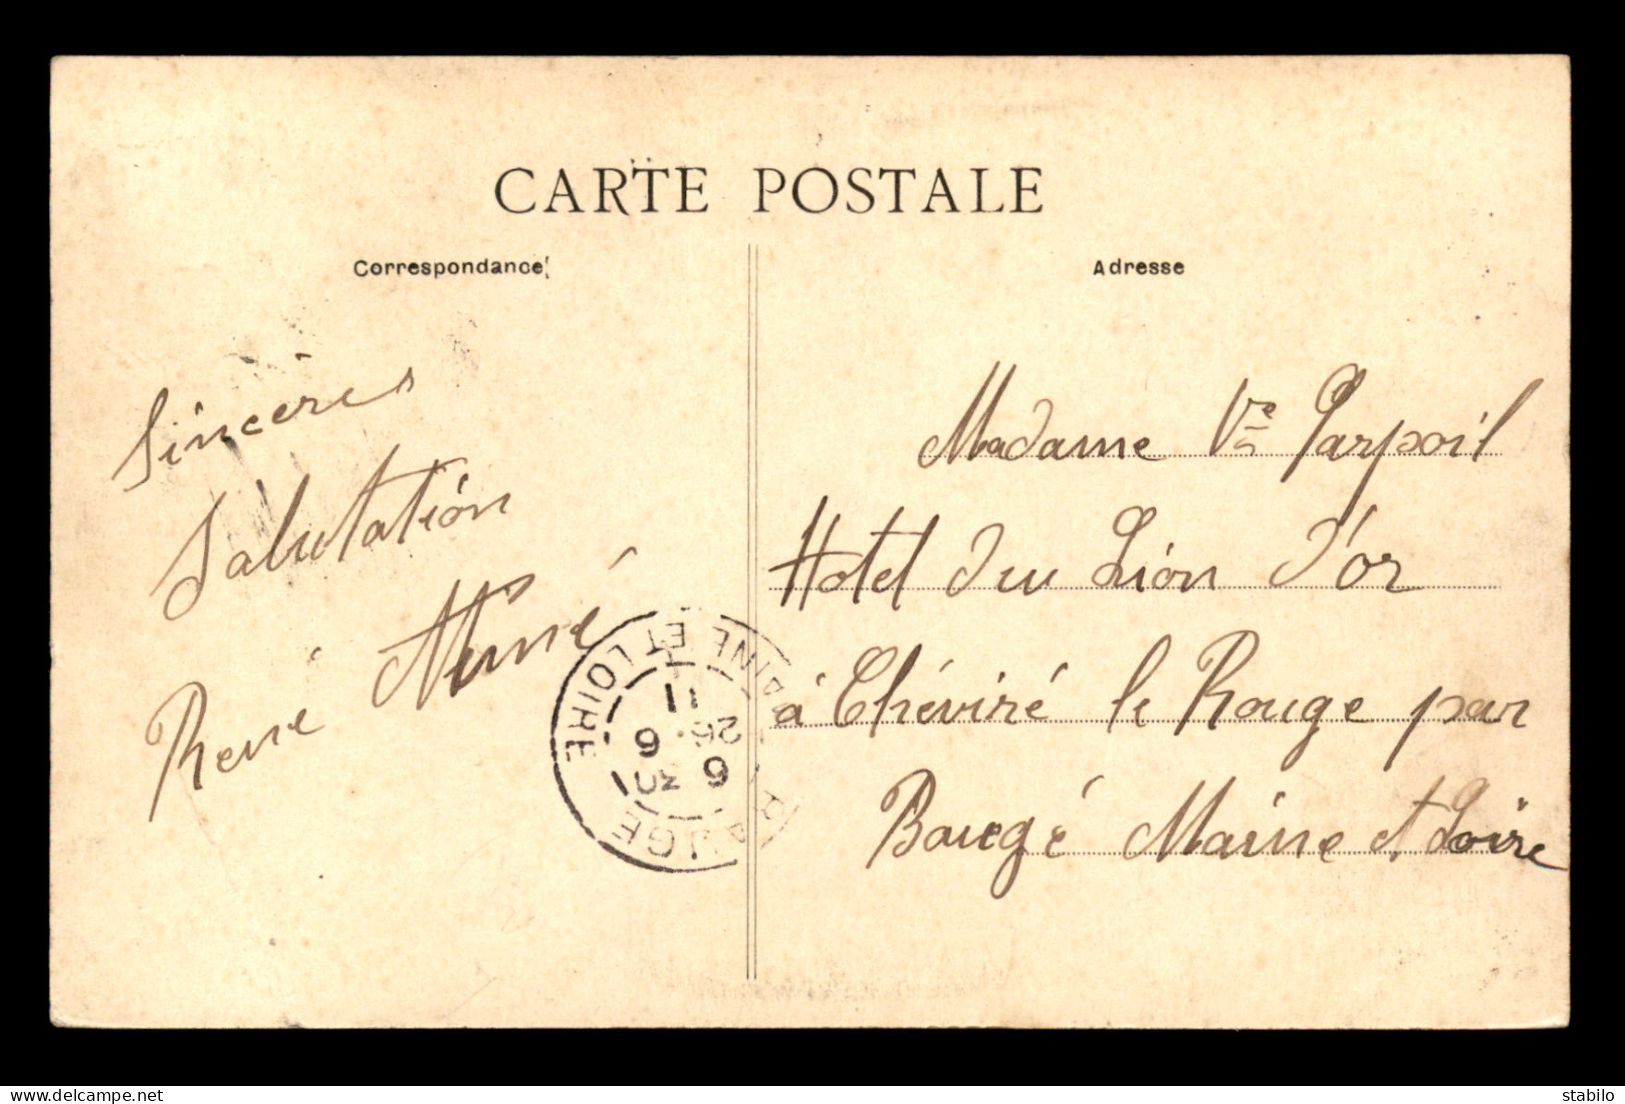 CARTE POSTALE
Correspondance
Adresse
Sincères
Salutation
René
Madame Vve Parpoil
Hotel du Lion d'or
à Chéviré le Rouge par
Baugé Maine et Loire
BAUGE
MAINE ET LOIRE
delcampe.net
stabilo